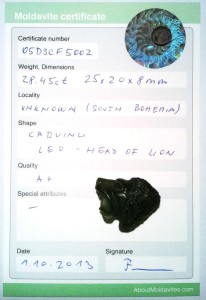 Moldavite certificate
Certificate number
05D3CF5002
Weight, Dimensions
28.45ct 25x20x8mm
Locality
UNKNOWN (SOUTH BOHEMIA)
Shape
CARVING
LEO - HEAD OF LION
Quality
A+
Special attributes
–
Date
Signature
1.10.2013
AboutMoldavites.com